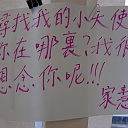 尋找我的小天使
你在哪裏?我們
想念你呢!!!
家慧